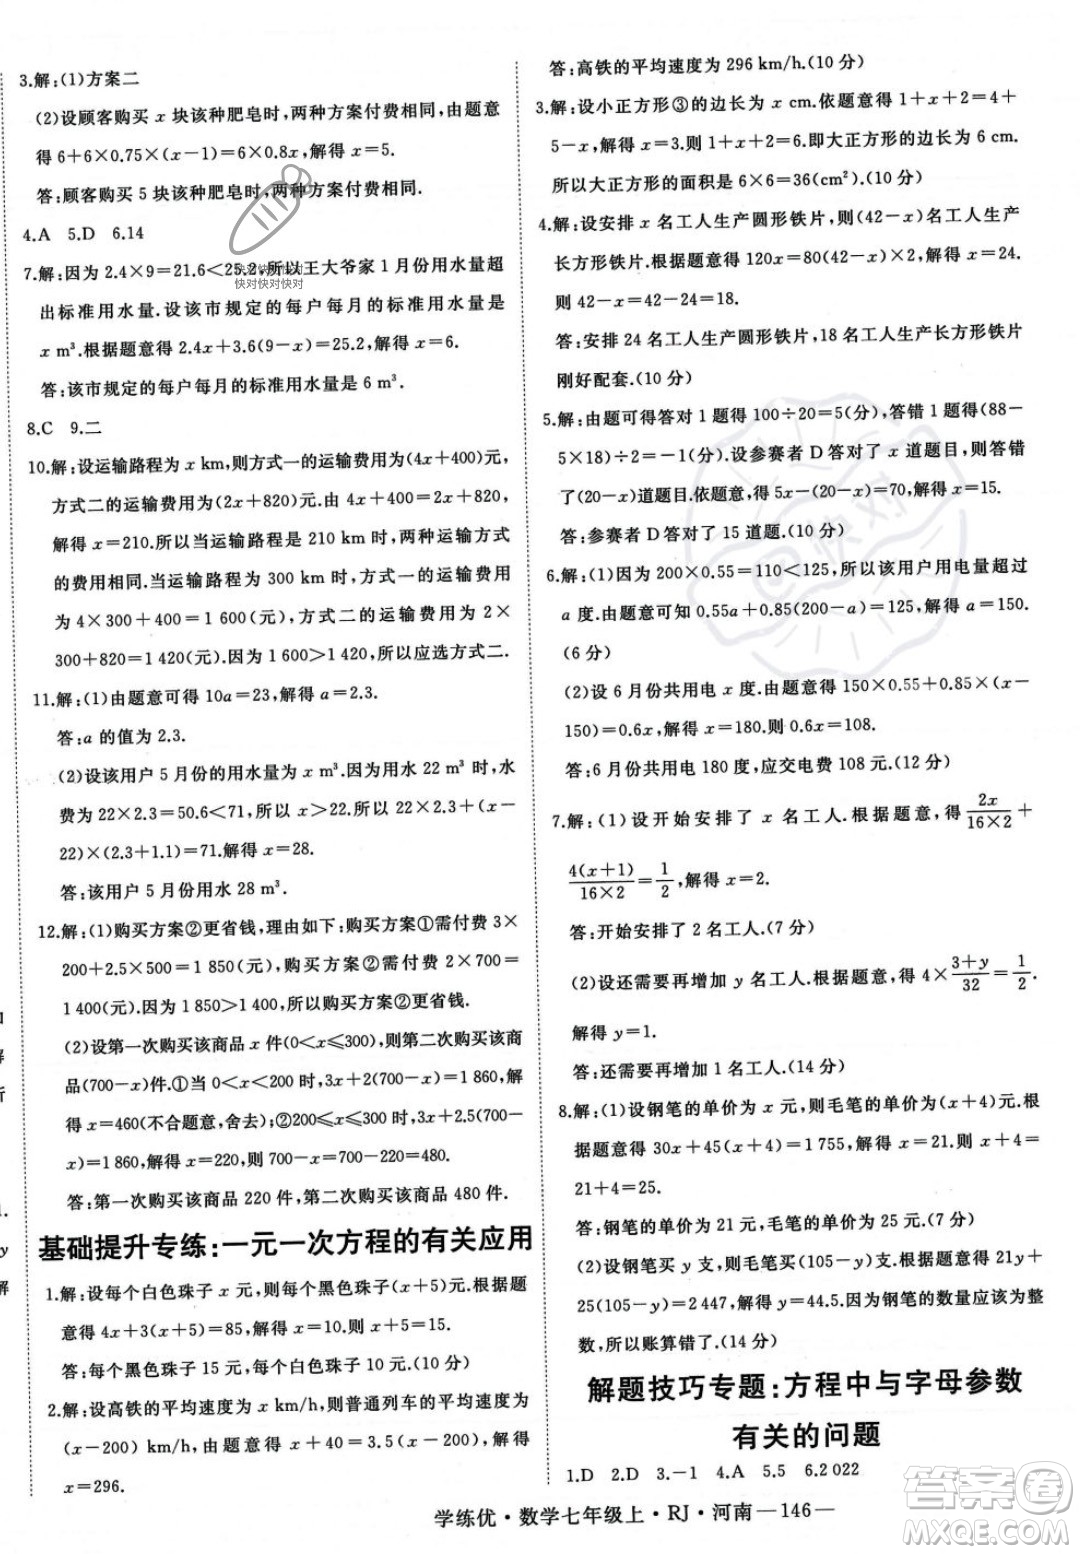 3.解:(1)方案二
(2)设顾客购买 x 块该种肥皂时,两种方案付费相同,由题意
得 6+6×0.75×(x−1)=6×0.8x,解得 x=5.
答:顾客购买 5 块该种肥皂时,两种方案付费相同.
4.A 5.D 6.14
7.解:因为 2.4×9=21.6<25.2,所以王大爷家 1 月份用水量超
出标准用水量.设该市规定的每户每月的标准用水量为
x m³.根据题意得 2.4x+3.6(9−x)=25.2,解得 x=6.
答:该市规定的每户每月的标准用水量为 6 m³.
8.C 9.二
10.解:设运输路程为 x km,则方式一的运输费用为(4x+400)元,
方式二的运输费用为(2x+820)元.由题意得 4x+400=2x+820,
解得 x=210.所以当运输路程是 210 km 时,两种运输方式
的费用相同.当运输路程为 300 km 时,方式一的运输费用
为 4×300+400=1 600(元),方式二的运输费用为 2×
300+820=1 420(元).因为 1 600>1 420,所以应选方式二.
11.解:(1)由题意可得 10a=23,解得 a=2.3.
答:a 的值为 2.3.
(2)设该用户 5 月份的用水量为 x m³.因为用水 22 m³ 时,水
费为 22×2.3=50.6<71,所以 x>22.所以 22×2.3+(x−
22)×(2.3+1.1)=71.解得 x=28.
答:该用户 5 月份用水 28 m³.
12.解:(1)购买方案②更省钱,理由如下:购买方案①需付费 3×
200+2.5×500=1 850(元),购买方案②需付费 2×700=
1 400(元).因为 1 850>1 400,所以购买方案②更省钱.
(2)设第一次购买该商品 x 件(0<x≤300),则第二次购买该商
品(700−x)件.①当 0<x<200 时,3x+2(700−x)=1 860,解
得 x=460(不合题意,舍去);②200≤x≤300 时,3x+2.5(700−
x)=1 860,解得 x=220,则 700−x=700−220=480.
答:第一次购买该商品 220 件,第二次购买该商品 480 件.
基础提升专练:一元一次方程的有关应用
1.解:设每个白色珠子 x 元,则每个黑色珠子(x+5)元.根据题
意得 4x+3(x+5)=85,解得 x=10.所以 x+5=15.
答:每个黑色珠子 15 元,每个白色珠子 10 元.(10 分)
2.解:设高铁的平均速度为 x km/h,则普通列车的平均速度为
(x−200) km/h,由题意得 x+40=3.5(x−200),解得
x=296.
答:高铁的平均速度为 296 km/h.(10 分)
3.解:设小正方形③的边长为 x cm.依题意得 1+x+2=4+
5−x,解得 x=3.所以 1+x+2=6.即大正方形的边长为 6 cm.
所以大正方形的面积是 6×6=36(cm²).(10 分)
4.解:设安排 x 名工人生产圆形铁片,则(42−x)名工人生产
长方形铁片.根据题意得 120x=80(42−x)×2,解得 x=24.
则 42−x=42−24=18.
答:安排 24 名工人生产圆形铁片,18 名工人生产长方形铁片
刚好配套.(10 分)
5.解:由题可得答对 1 题得 100÷20=5(分),答错 1 题得(88−
5×18)÷2=−1(分).设参赛者 D 答对了 x 道题,则答错
了(20−x)道题目.依题意,得 5x−(20−x)=70,解得 x=15.
答:参赛者 D 答对了 15 道题.(10 分)
6.解:(1)因为 200×0.55=110<125,所以该用户用电量超过
a 度.由题意可知 0.55a+0.85(200−a)=125,解得 a=150.
(6 分)
(2)设 6 月份共用电 x 度.由题意得 150×0.55+0.85×(x−
150)=0.6x,解得 x=180.则 0.6x=108.
答:6 月份共用电 180 度,应交电费 108 元.(12 分)
7.解:(1)设开始安排了 x 名工人.根据题意,得 2x/(16×2)+
4(x+1)/(16×2)=1/2,解得 x=2.
答:开始安排了 2 名工人.(7 分)
(2)设还需要再增加 y 名工人.根据题意,得 4×(3+y)/32=1/2.
解得 y=1.
答:还需要再增加 1 名工人.(14 分)
8.解:(1)设钢笔的单价为 x 元,则毛笔的单价为(x+4)元.根
据题意得 30x+45(x+4)=1 755,解得 x=21.则 x+4=
21+4=25.
答:钢笔的单价为 21 元,毛笔的单价为 25 元.(7 分)
(2)设钢笔买 y 支,则毛笔买(105−y)支.根据题意,得 21y+
25(105−y)=2 447,解得 y=44.5.因为钢笔的数量应该为整
数,所以账算错了.(14 分)
解题技巧专题:方程中与字母参数
有关的问题
1.D 2.D 3.−1 4.A 5.5 6.2 022
学练优·数学七年级上·RJ·河南—146—
快对快对快对
快对快对快对
答案圈
MXQE.COM